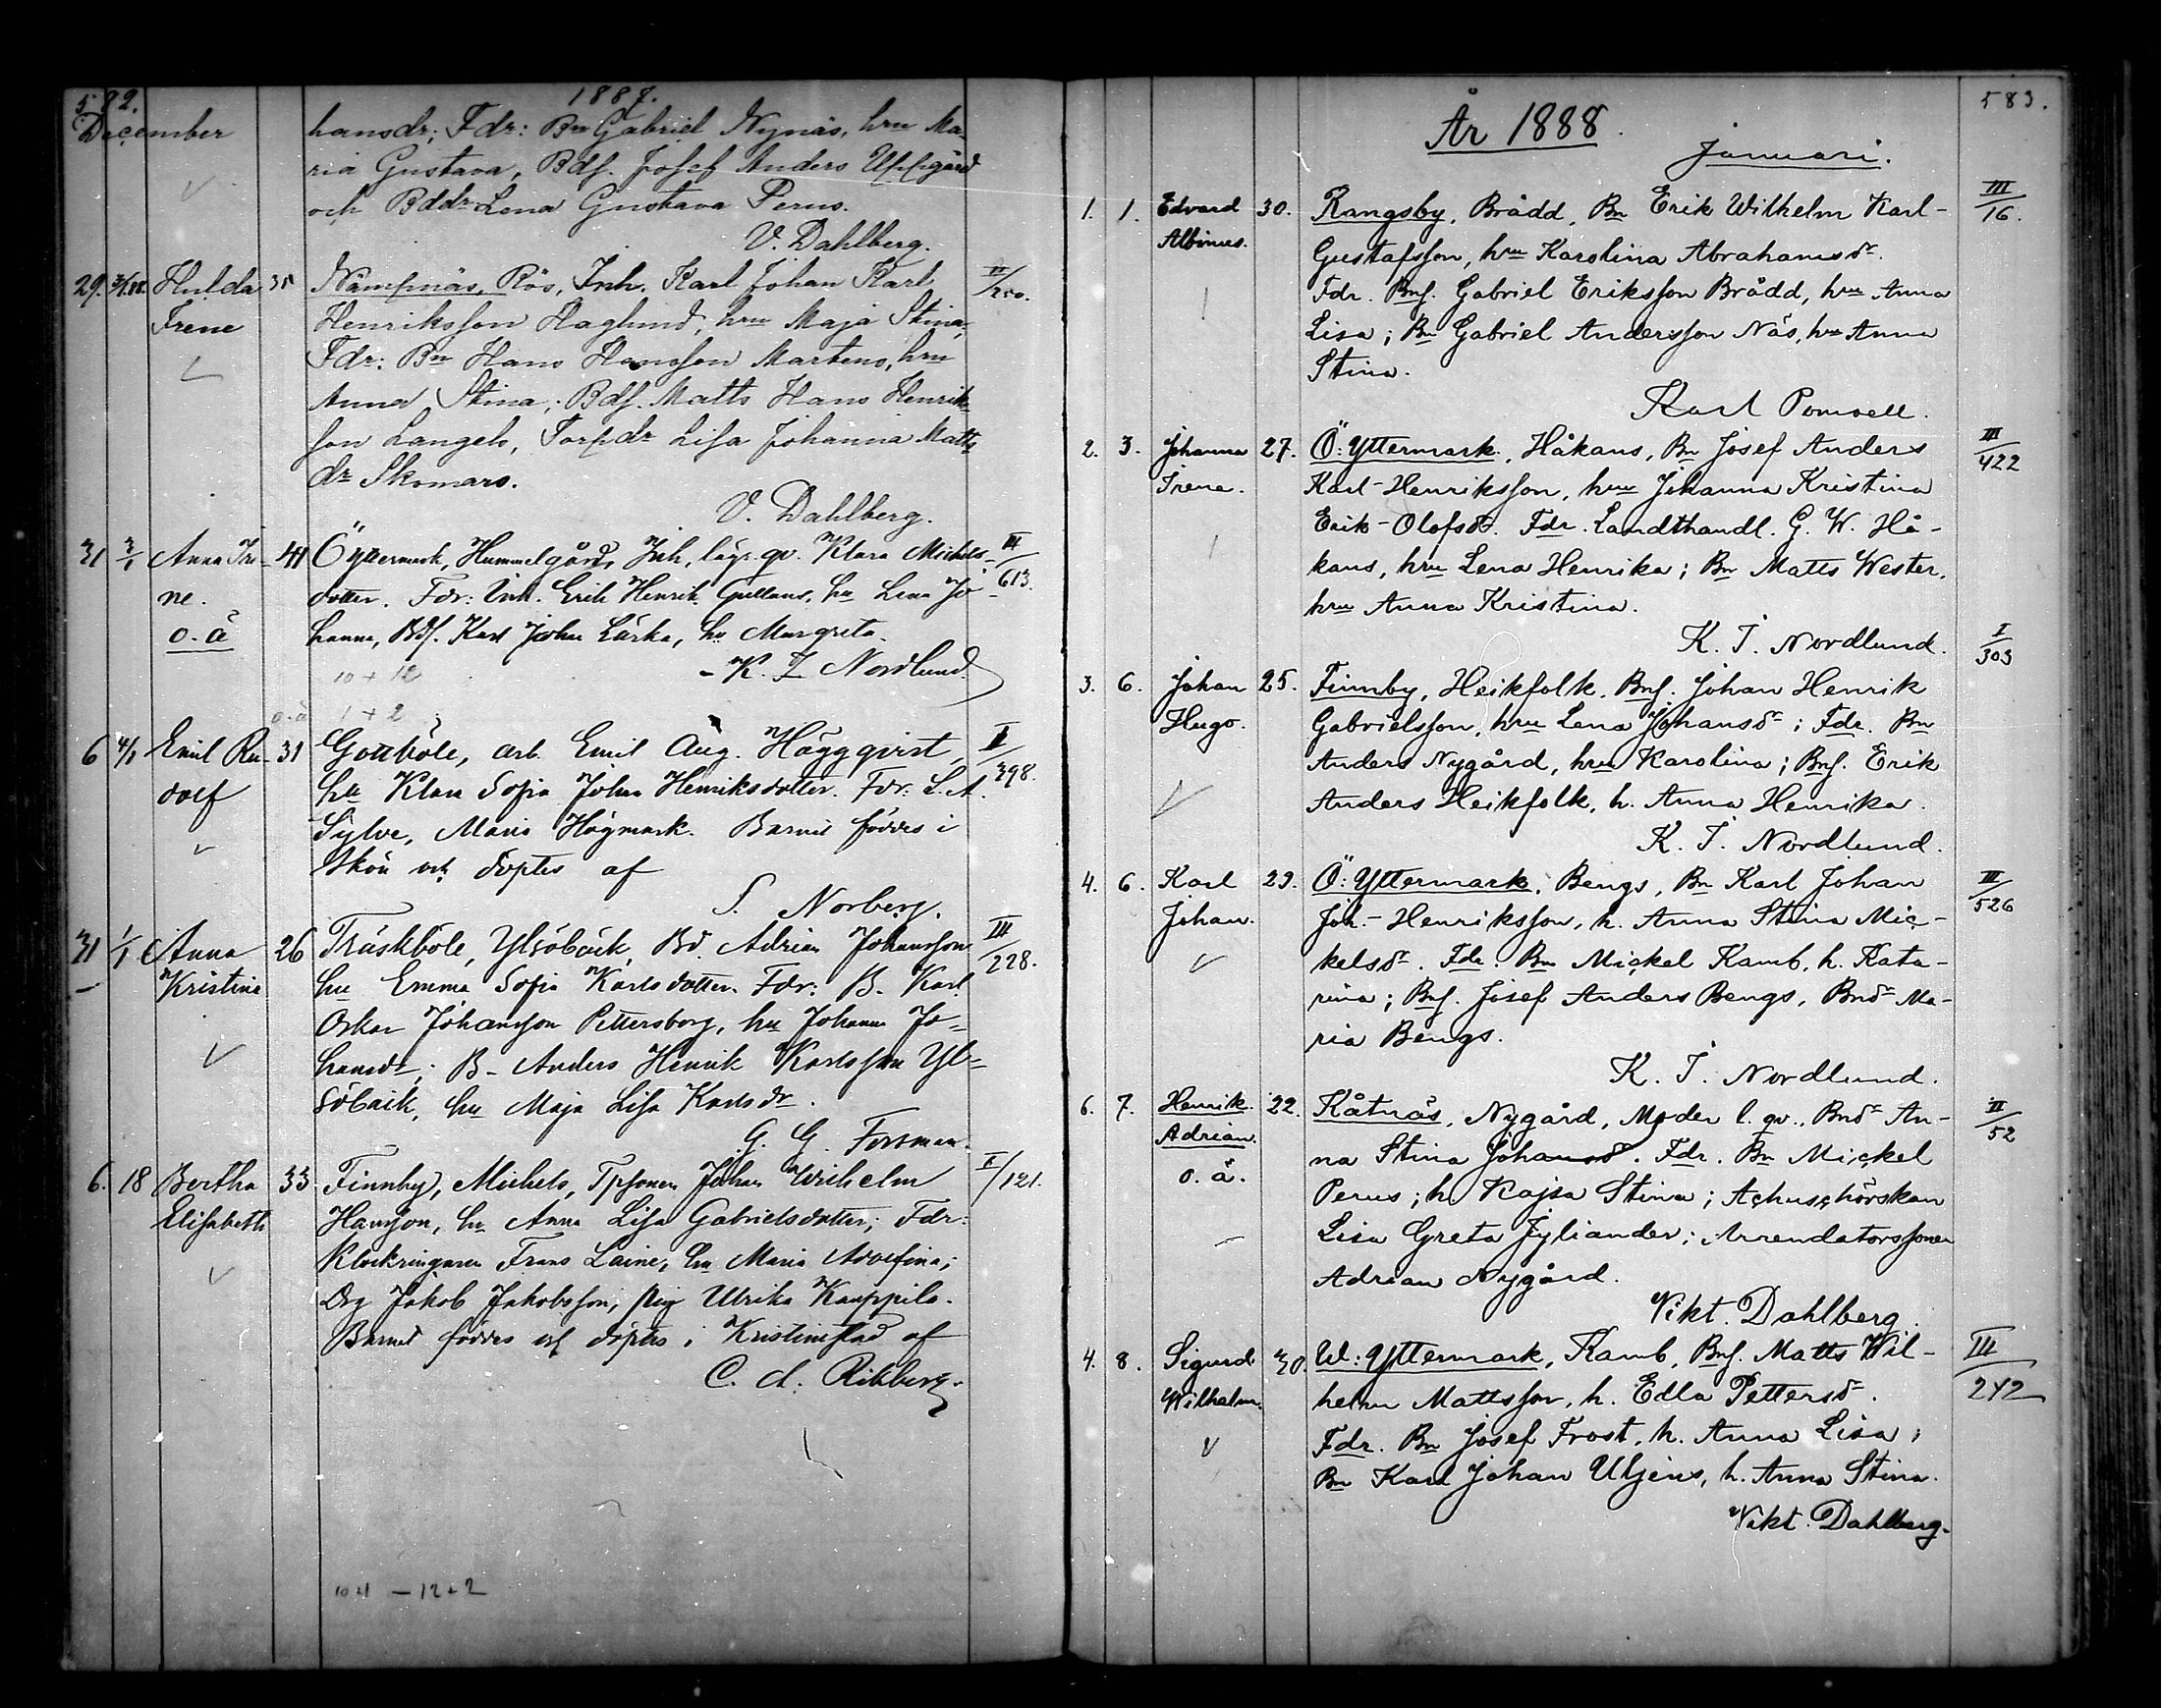 582.
1887.
December
hansdr; Fdr: Bn Gabriel Nynäs, hru Ma-
ria Gustava, Bdſ. Josef Anders Uppgård
och Bddr Lena Gustava Perus.
V. Dahlberg.
29. 2/1 88. Hulda 35 Nämpnäs, Rös, Inh. Karl Johan Karl II/250.
Irene Henriksson Haglund, hru Maja Stina,
Fdr: Bn Hans Hansson Martens, hru
Anna Stina; Bdſ. Matts Hans Henriks-
son Langels, Torpdr Lisa Johanna Matts
dr Skomars.
V. Dahlberg.
31 3/1 Anna Ire- 41 Ö yttermark, Hummelgård, Inh. läg. qv. Klara Michels- III/613.
ne. dotter. Fdr: Inh. Erik Henrik Gullans, hu Lena Jo-
o.ä hanna, Bdſ. Karl Johan Lärka, hu Margreta.
10 + 12 K. I. Nordlund
o.ä 1 + 2
6 4/1 Emil Ru- 31 Gottböle, arb. Emil Aug. Häggqvist, II/398.
dolf hu Klara Sofia Johan Henriksdotter. Fdr: L. A.
Sylve, Maria Högmark. Barnet föddes i
Skön och döptes af
S. Norberg.
31 1/1 Anna 26 Träskböle, Ylisöbäck, Bd. Adrian Johansson III/228.
Kristina hu Emma Sofia Karlsdotter. Fdr: B. Karl
Oskar Johansson Pettersborg, hu Johanna Jo-
hansdr; B- Anders Henrik Karlsson Yl-
söbäck, hu Maja Lisa Karlsdr.
G. G. Forsman.
6. 18 Bertha 33 Finnby, Michels, Tpsonen Johan Wilhelm I/121.
Elisabeth Hansson, hu Anna Lisa Gabrielsdotter; Fdr:
Klockringaren Frans Laine, hu Maria Adolfina;
Drg Jakob Jakobsson, pig Ulrika Kauppila.
Barnet föddes och döptes i Kristinestad af
C. A. Rihberg.
10 21 – 12 + 2
583.
År 1888.
Januari.
1. 1. Edvard 30. Rangsby, Brådd, Bn Erik Wilhelm Karl- III/16.
Albinus. Gustafsson, hru Karolina Abrahamsdr.
Fdr. Bnſ. Gabriel Eriksson Brådd, hru Anna
Lisa; Bn Gabriel Andersson Näs, hru Anna
Stina.
Karl Pomoell.
2. 3. Johanna 27. Ö: Yttermark, Håkans, Bn Josef Anders III/422
Irene. Karl-Henriksson, hru Johanna Kristina
Erik-Olofsdr. Fdr. Landthandl. G. W. Hå-
kans, hru Lena Henrika; Bn Matts Wester,
hru Anna Kristina.
K. I. Nordlund.
3. 6. Johan 25. Finnby, Heikfolk, Bnſ. Johan Henrik I/303
Hugo. Gabrielsson, hru Lena Johansdr; Fdr. Bn
Anders Nygård, hru Karolina; Bnſ. Erik
Anders Heikfolk, h. Anna Henrika.
K. I. Nordlund.
4. 6. Karl 29. Ö: Yttermark, Bengs, Bn Karl Johan III/526
Johan. Joh.-Henriksson, h. Anna Stina Mic-
kelsdr. Fdr. Bn Mickel Kamb, h. Kata-
rina; Bnſ. Josef Anders Bengs, Bndr Ma-
ria Bengs.
K. I. Nordlund.
6. 7. Henrik 22. Kåtnäs, Nygård, Moder l. qv., Bndr An- II/52
Adrian. na Stina Johansdr. Fdr. Bn Mickel
o. ä. Perus; h. Kajsa Stina; Achuschörskan
Lisa Greta Jyliander; Arrendatorssonen
Adrian Nygård.
Vikt. Dahlberg.
4. 8. Sigurd 30. W: Yttermark, Kamb, Bnſ. Matts Wil- III/242
Wilhelm. helm Mattsson, h. Edla Pettersdr.
Fdr. Bn Josef Frost, h. Anna Lisa;
Bn Karl Johan Uljens, h. Anna Stina.
Vikt. Dahlberg.